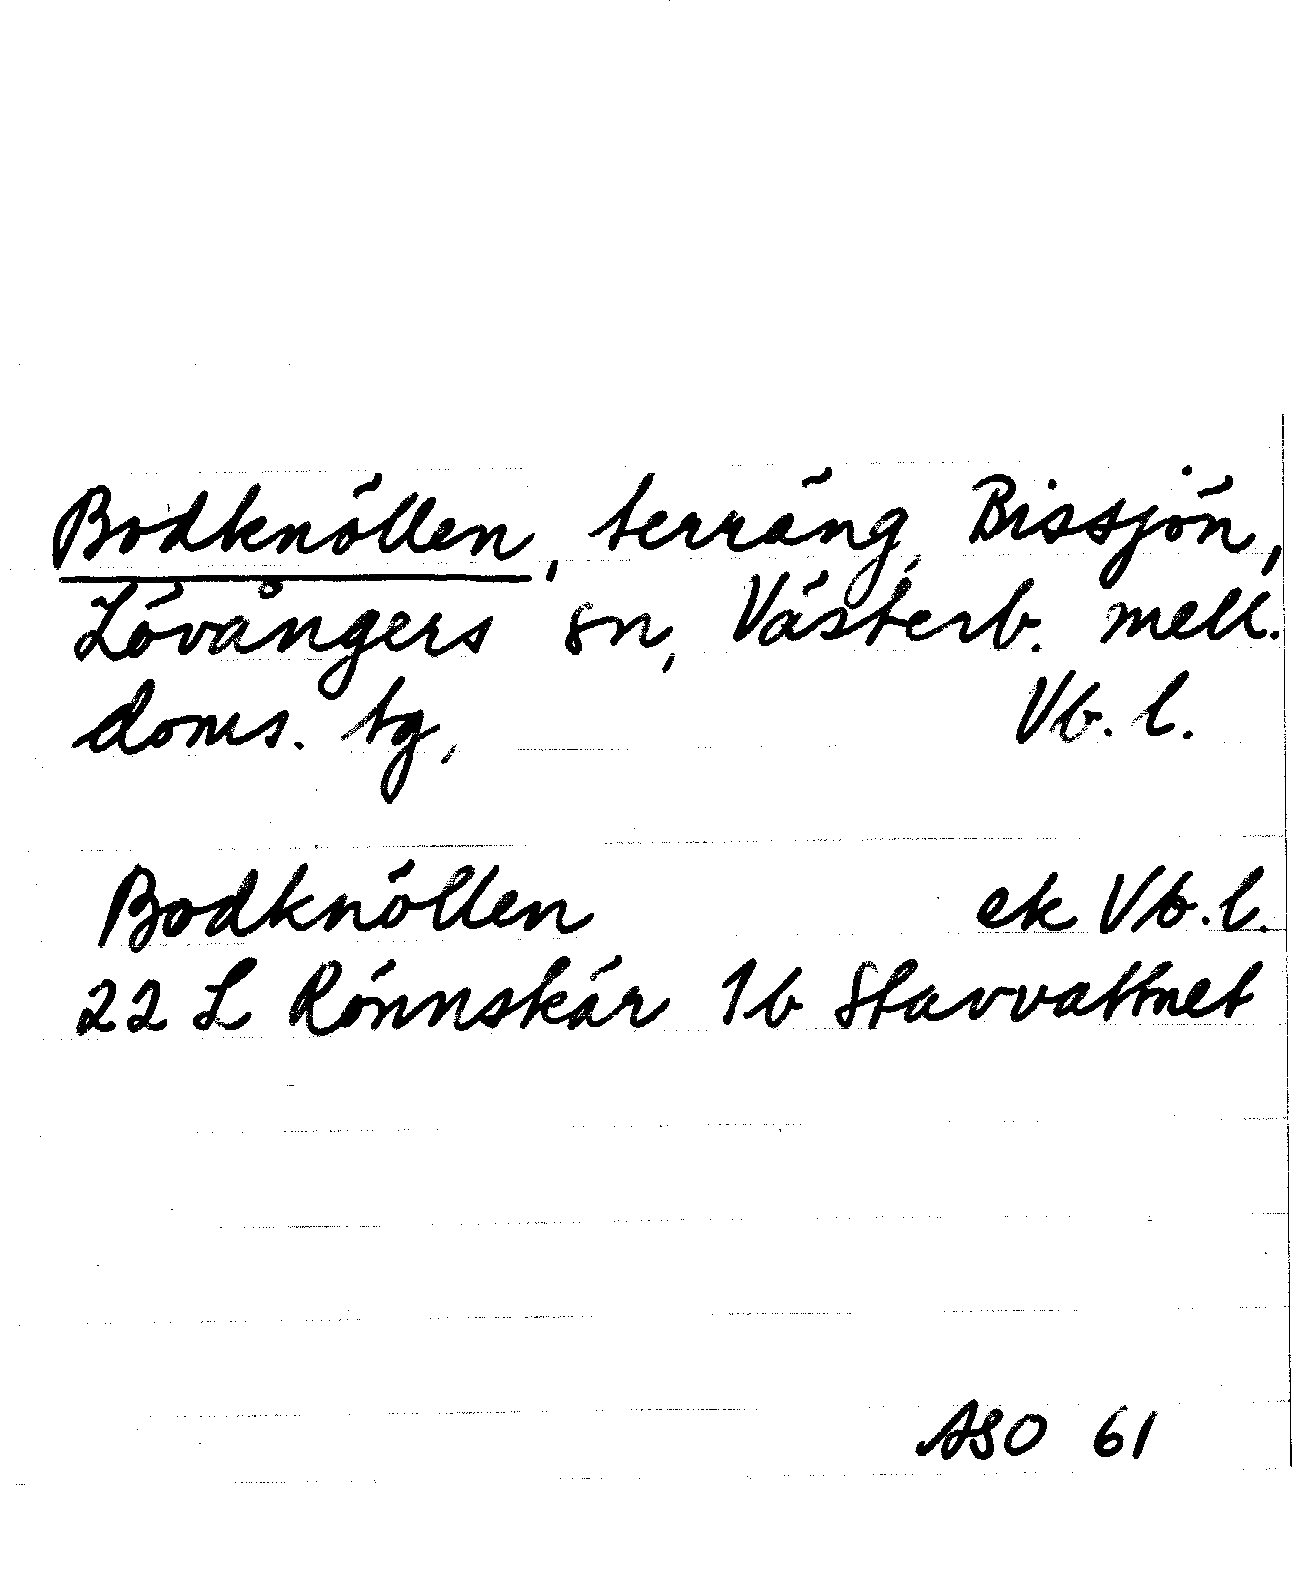 Bodknöllen, terräng, Bissjön,
Lövångers sn, Västerb. mell.
doms. tg, Vb. l.
Bodknöllen ek Vb. l.
22 L Rönnskär 1b Stavvattnet
ASO 61